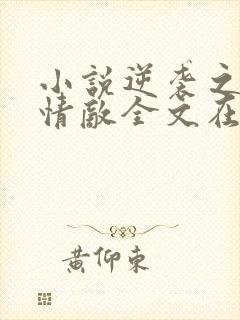 小說逆袭之
情敵全文在
黃仰東